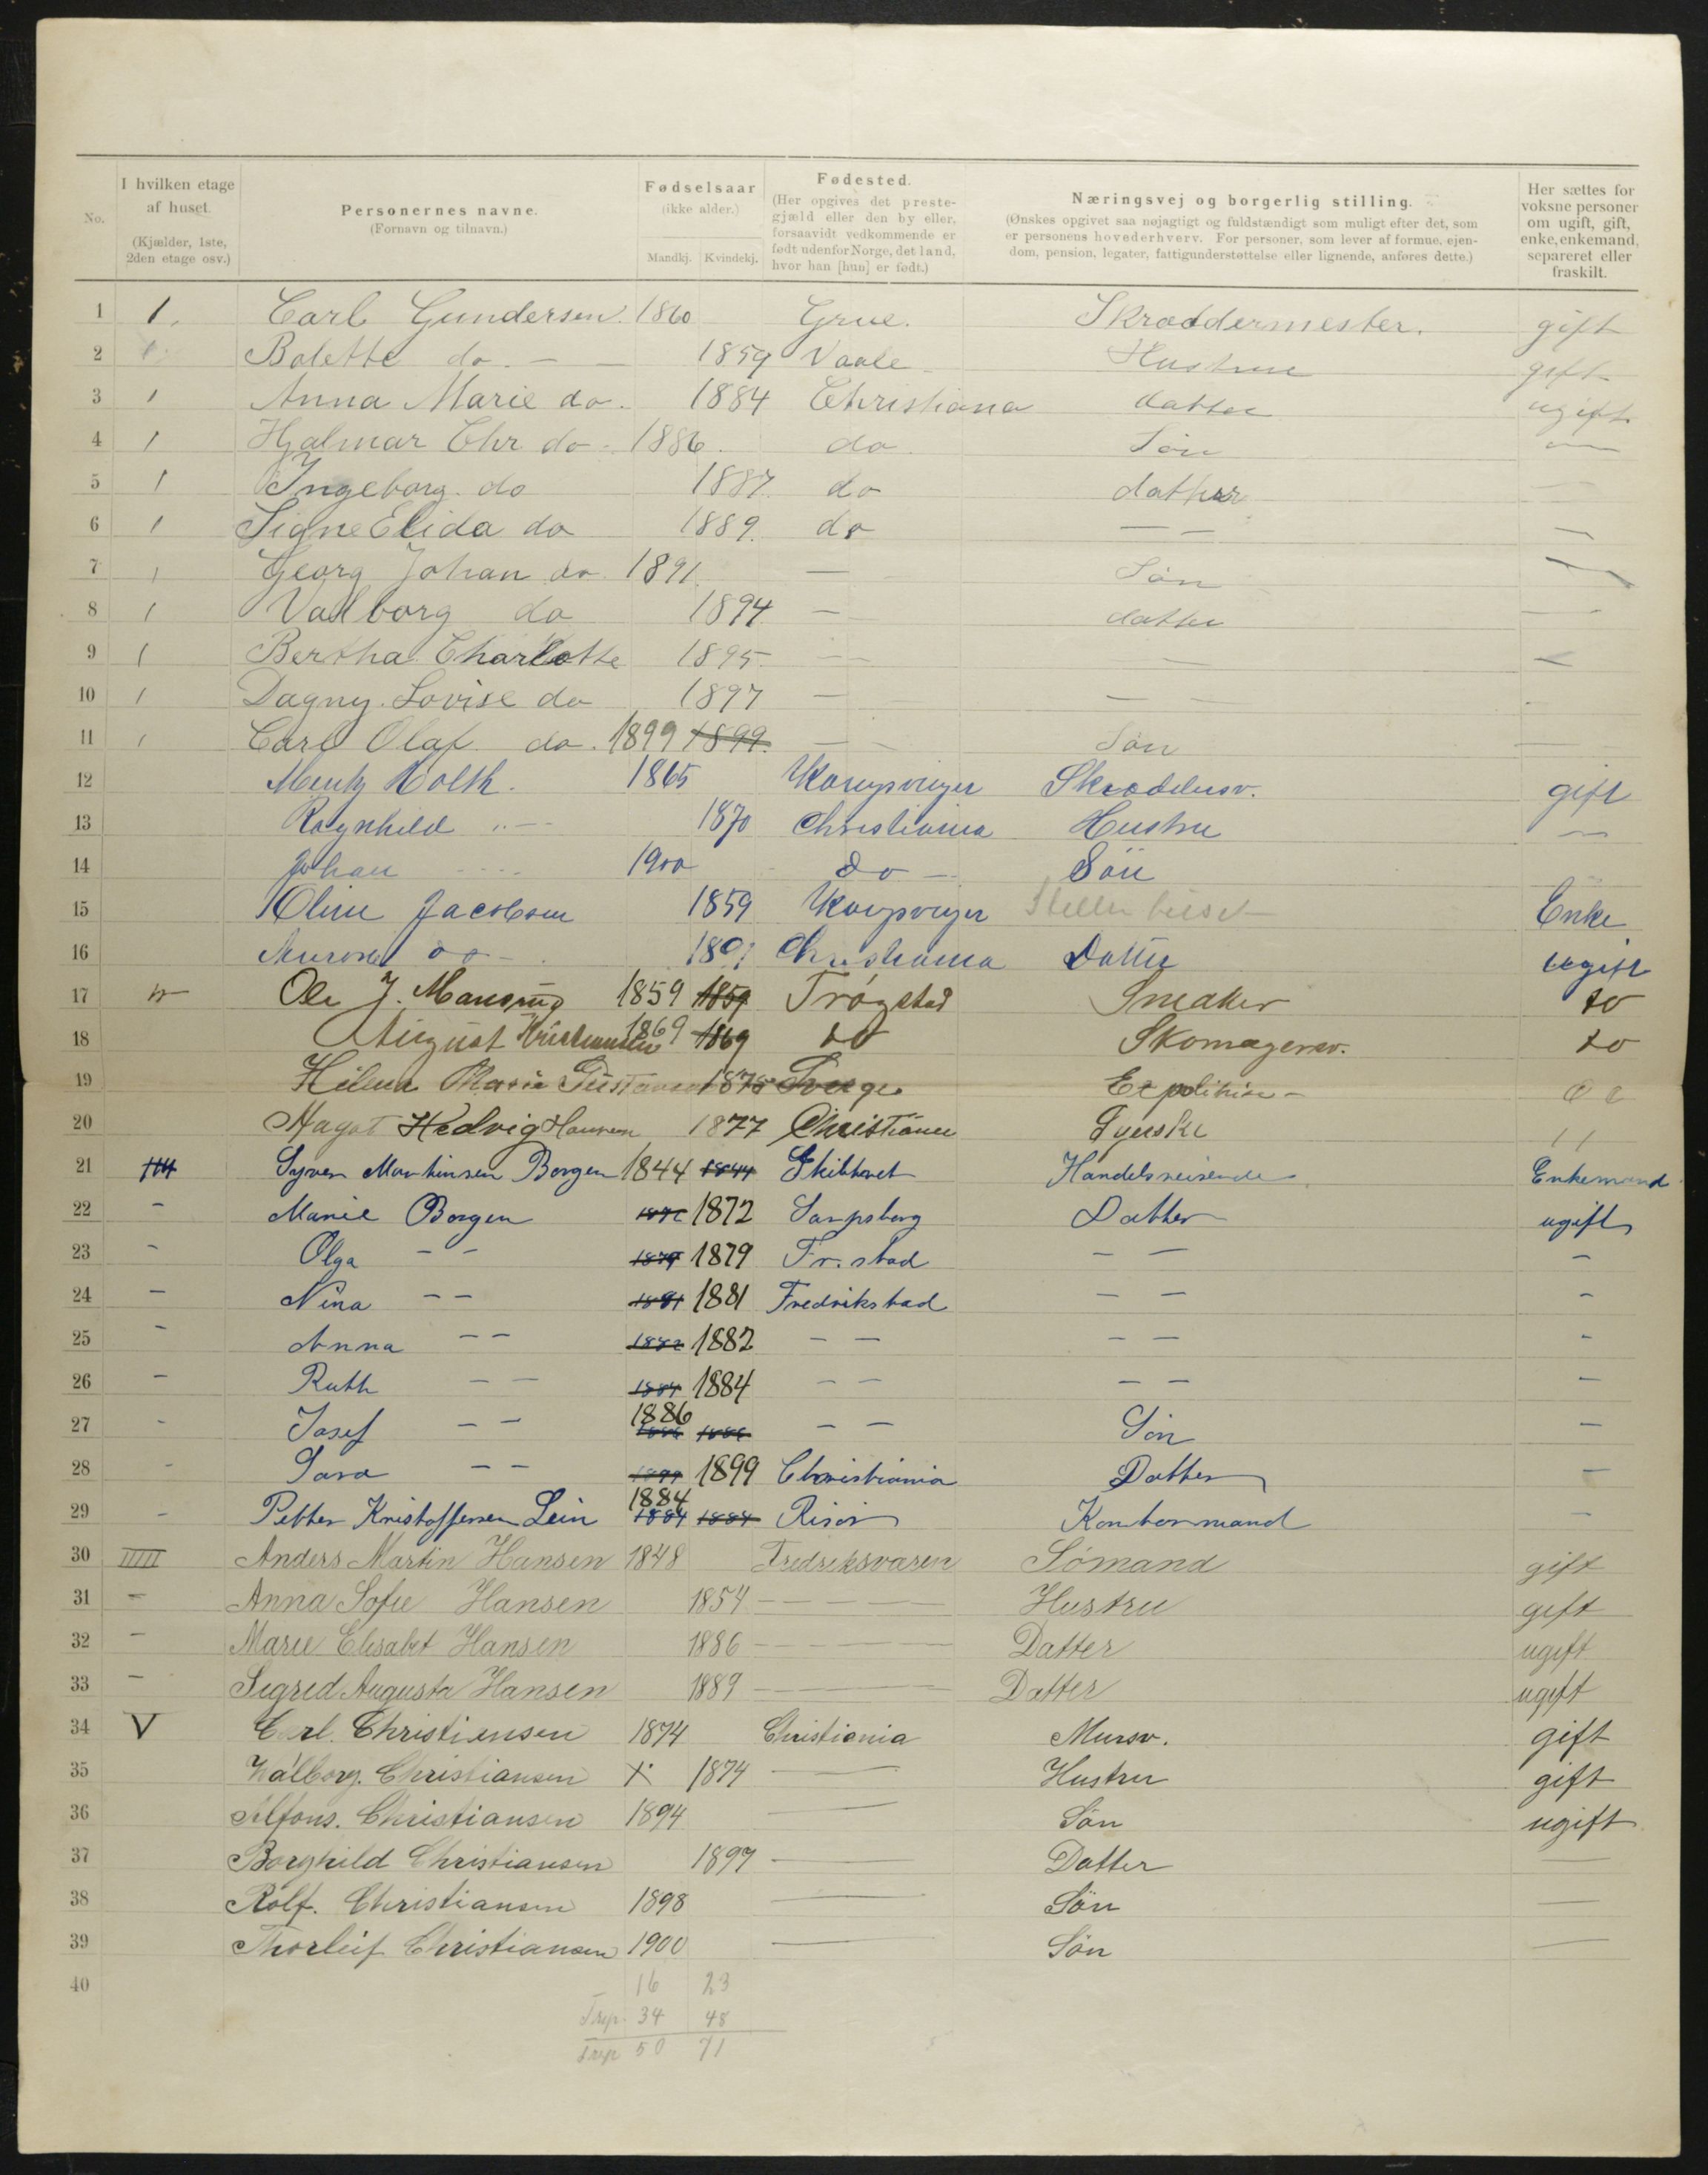 No. I hvilken etage af huset. (Kjælder, 1ste, 2den etage osv.) Personernes navne. (Fornavn og tilnavn.) Fødselsaar (ikke alder.) Mandkj. Kvindekj. Fødested. (Her opgives det prestegjæld eller den by eller, forsaavidt vedkommende er født udenfor Norge, det land, hvor han [hun] er født.) Næringsvej og borgerlig stilling. (Ønskes opgivet saa nøjagtigt og fuldstændigt som muligt efter det, som er personens hovederhverv. For personer, som lever af formue, ejendom, pension, legater, fattigunderstøttelse eller lignende, anføres dette.) Her sættes for voksne personer om ugift, gift, enke, enkemand, separeret eller fraskilt.
1 1. Carl Gundersen. 1860 Grue. Skræddermester. gift
2 Bolette do. — — 1859 Vaale Hustru gift
3 1 Anna Marie do. 1884 Christiana datter ugift
4 1 Hjalmar Chr do. 1886. do. Søn —
5 1 Ingeborg. do 1887. do datter —
6 1 Signe Elida do 1889. do — — —
7 1 Georg Johan do. 1891. — Søn —
8 1 Valborg do 1894 — datter —
9 1 Bertha Charlotte 1895. — — —
10 1 Dagny. Lovise do 1897 — — —
11 1 Carl Olaf. do. 1899 1899. — Søn —
12 Holth. 1865 Kongsvinger Skræddersv. gift
13 Ragnhild „ — 1870 Christiania Hustru —
14 Johan 1900 do — Søn
15 Oline Jacobsen 1859 Kongsvinger Enke
16 do — Christiania Datter ugift
17 Ole J. 1859 1859 Trøgstad Snedker do
18 August Kristiansen 1869 1869 do Skomagersv. do
19 Hilma Maria 1875 Sverge
20 Hedvig Hansen 1877 Christiania Syerske „
21 Syver Martinsen Borgen 1844 1844 Skibtvet Handelsreisende Enkemand
22 - Marie Borgen 1872 1872 Sarpsborg Datter ugift
23 - Olga — — 1879 1879 Fr.stad — — -
24 - Nina — — 1881 1881 Fredrikstad — — -
25 - Anna — — 1882 1882 — — — — -
26 - Ruth — — 1884 1884 — — — — -
27 - Josef — — 1886 1886 1886 — — Søn —
28 - Sara — — 1899 1899 Christiania Datter —
29 - Petter Kristoffersen Lein 1884 1884 1884 Risør Kontormand —
30 IIIII Anders Martin Hansen 1848 Fredriksværen Sömand gift
31 — Anna Sofie Hansen 1854 — — — — Hustru gift
32 — Marie Elisabet Hansen 1886 — — — — Datter ugift
33 — Sigred Augusta Hansen 1889 — — — — Datter ugift
34 V Carl. Christiensen 1874 Christiania Mursv. gift
35 Walborg. Christiansen X 1874 — Hustru gift
36 Alfons. Christiansen 1894 — Søn ugift
37 Borghild Christiansen 1897 — Datter —
38 Rolf. Christiansen 1898 — Søn —
39 Thorleif Christiansen 1900 — Søn —
40 16 23
34 48
50 71